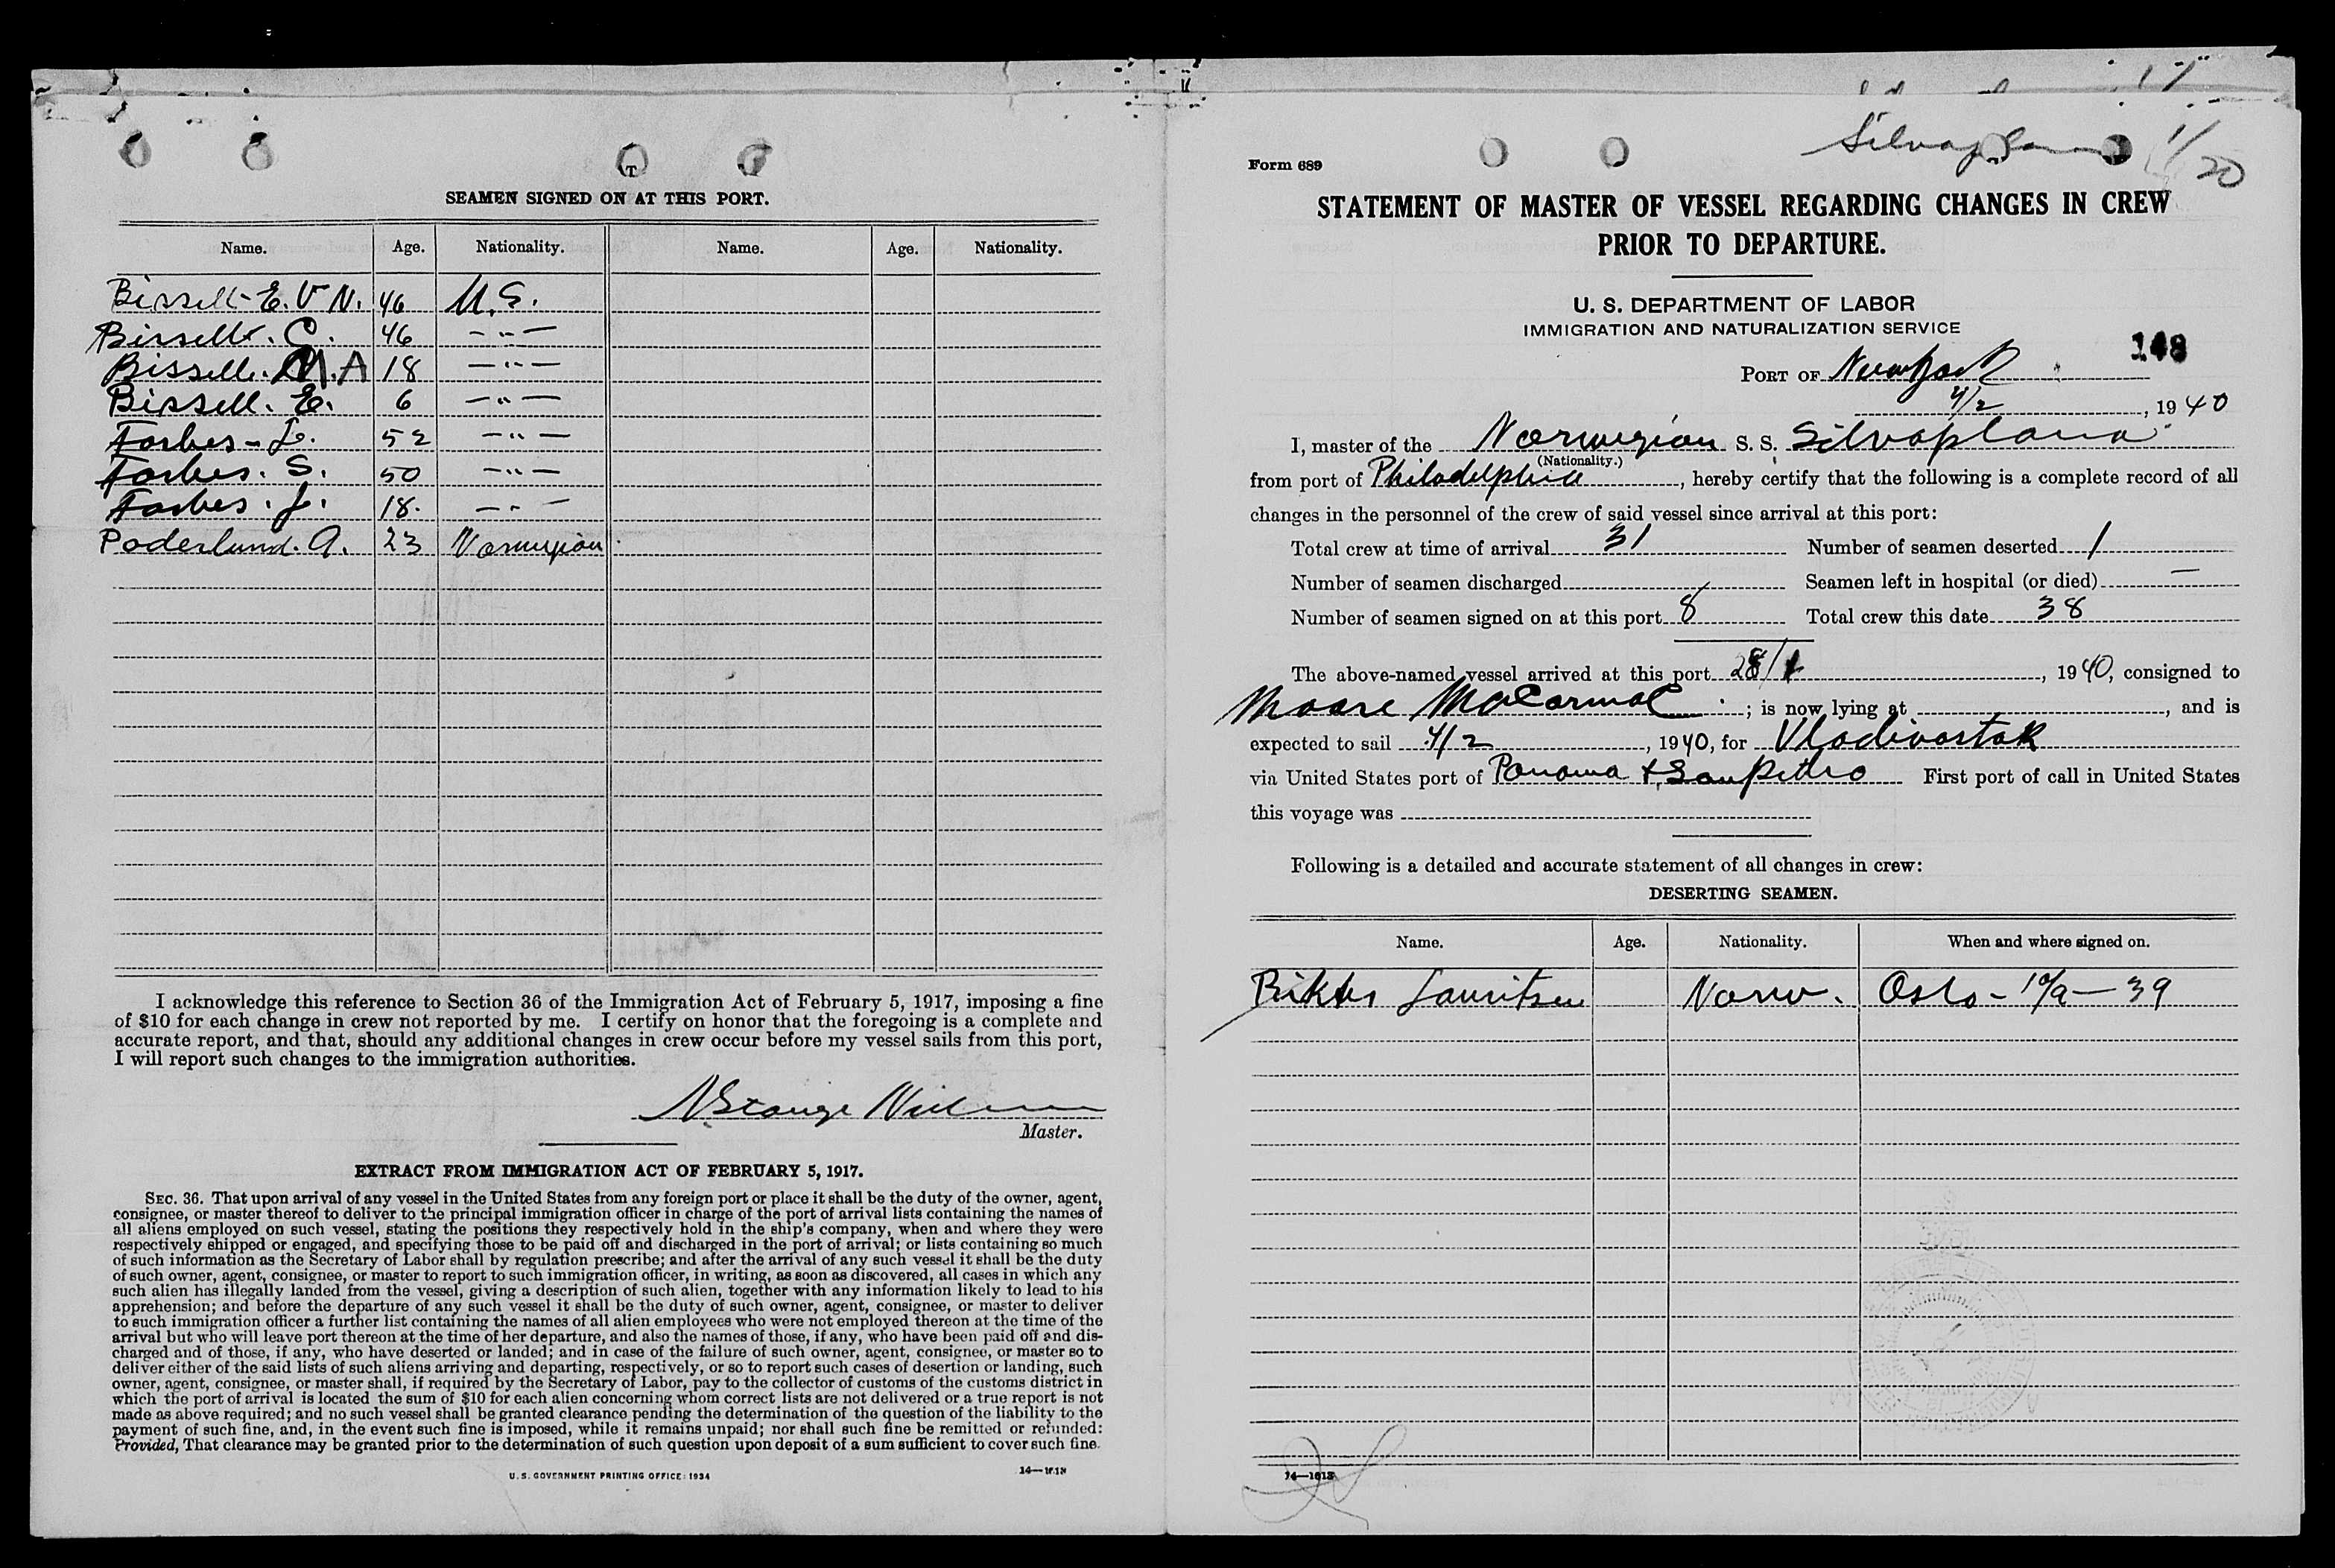 SEAMEN SIGNED ON AT THIS PORT.
Name. Age. Nationality. Name. Age. Nationality.
Bissell - E. V N. 46 U.S.
Bissell. C. 46 — " —
Bissell. M. A 18 — " —
Bissell. E. 6 — " —
Forbes - L. 52 — " —
Forbes. S. 50 — " —
Forbes. J. 18. — " —
Poderlund. A. 23 Norwegian
I acknowledge this reference to Section 36 of the Immigration Act of February 5, 1917, imposing a fine
of $10 for each change in crew not reported by me. I certify on honor that the foregoing is a complete and
accurate report, and that, should any additional changes in crew occur before my vessel sails from this port,
I will report such changes to the immigration authorities.
Master.
EXTRACT FROM IMMIGRATION ACT OF FEBRUARY 5, 1917.
SEC. 36. That upon arrival of any vessel in the United States from any foreign port or place it shall be the duty of the owner, agent,
consignee, or master thereof to deliver to the principal immigration officer in charge of the port of arrival lists containing the names of
all aliens employed on such vessel, stating the positions they respectively hold in the ship's company, when and where they were
respectively shipped or engaged, and specifying those to be paid off and discharged in the port of arrival; or lists containing so much
of such information as the Secretary of Labor shall by regulation prescribe; and after the arrival of any such vessel it shall be the duty
of such owner, agent, consignee, or master to report to such immigration officer, in writing, as soon as discovered, all cases in which any
such alien has illegally landed from the vessel, giving a description of such alien, together with any information likely to lead to his
apprehension; and before the departure of any such vessel it shall be the duty of such owner, agent, consignee, or master to deliver
to such immigration officer a further list containing the names of all alien employees who were not employed thereon at the time of the
arrival but who will leave port thereon at the time of her departure, and also the names of those, if any, who have been paid off and dis-
charged and of those, if any, who have deserted or landed; and in case of the failure of such owner, agent, consignee, or master so to
deliver either of the said lists of such aliens arriving and departing, respectively, or so to report such cases of desertion or landing, such
owner, agent, consignee, or master shall, if required by the Secretary of Labor, pay to the collector of customs of the customs district in
which the port of arrival is located the sum of $10 for each alien concerning whom correct lists are not delivered or a true report is not
made as above required; and no such vessel shall be granted clearance pending the determination of the question of the liability to the
payment of such fine, and, in the event such fine is imposed, while it remains unpaid; nor shall such fine be remitted or refunded:
Provided, That clearance may be granted prior to the determination of such question upon deposit of a sum sufficient to cover such fine.
U. S. GOVERNMENT PRINTING OFFICE: 1934 14—1613
Silvaplana 1/20
Form 689
STATEMENT OF MASTER OF VESSEL REGARDING CHANGES IN CREW
PRIOR TO DEPARTURE.
U. S. DEPARTMENT OF LABOR
IMMIGRATION AND NATURALIZATION SERVICE
148
PORT OF New York
4/2, 1940
I, master of the Norwegian S. S. Silvaplana
(Nationality.)
from port of Philadelphia, hereby certify that the following is a complete record of all
changes in the personnel of the crew of said vessel since arrival at this port:
Total crew at time of arrival 31 Number of seamen deserted 1
Number of seamen discharged Seamen left in hospital (or died) —
Number of seamen signed on at this port 8 Total crew this date 38
The above-named vessel arrived at this port 28/1, 1940, consigned to
Moore MaCormac; is now lying at , and is
expected to sail 4/2, 1940, for Vladivostok
via United States port of Panama + San Pedro First port of call in United States
this voyage was
Following is a detailed and accurate statement of all changes in crew:
DESERTING SEAMEN.
Name. Age. Nationality. When and where signed on.
Lauritsen Norw. Oslo - 10/9 — 39
14—1613